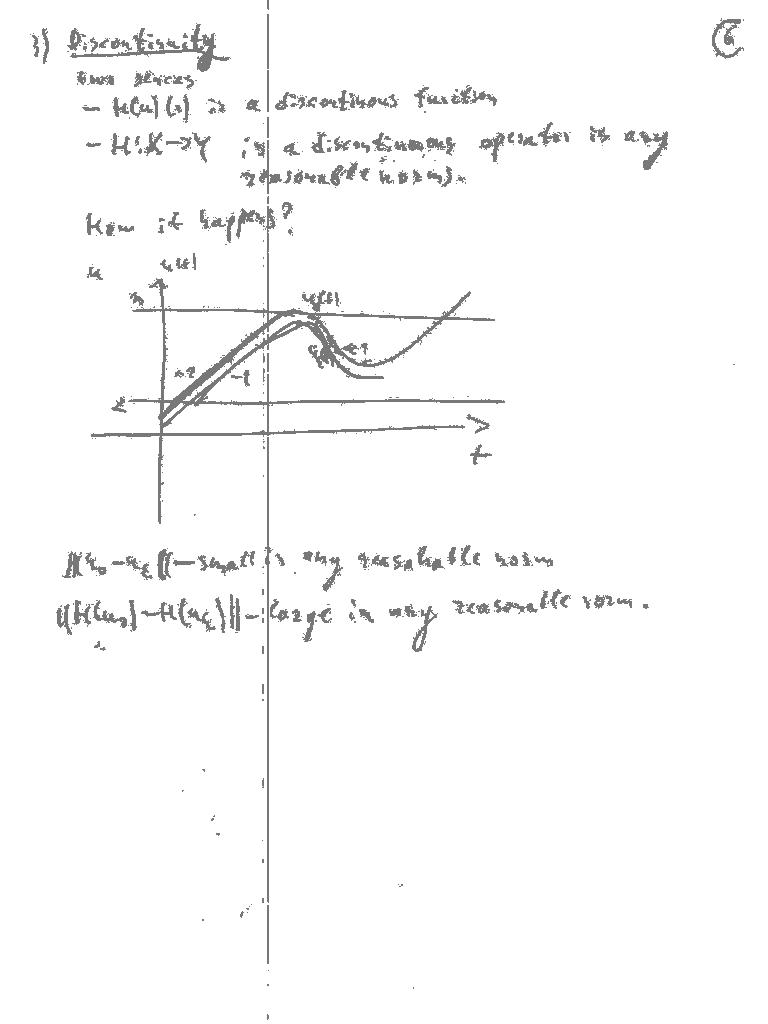 3) Discontinuity
6
- H(u)(t) is a discontinous function
- H: X→Y is a discontinuous operator in any
reasonable norm).
How it happens?
u u(t)
+1
-1
t
||u₀-u_ε|| - small in any reasonable norm
||H(u₀)-H(u_ε)|| - large in any reasonable norm.